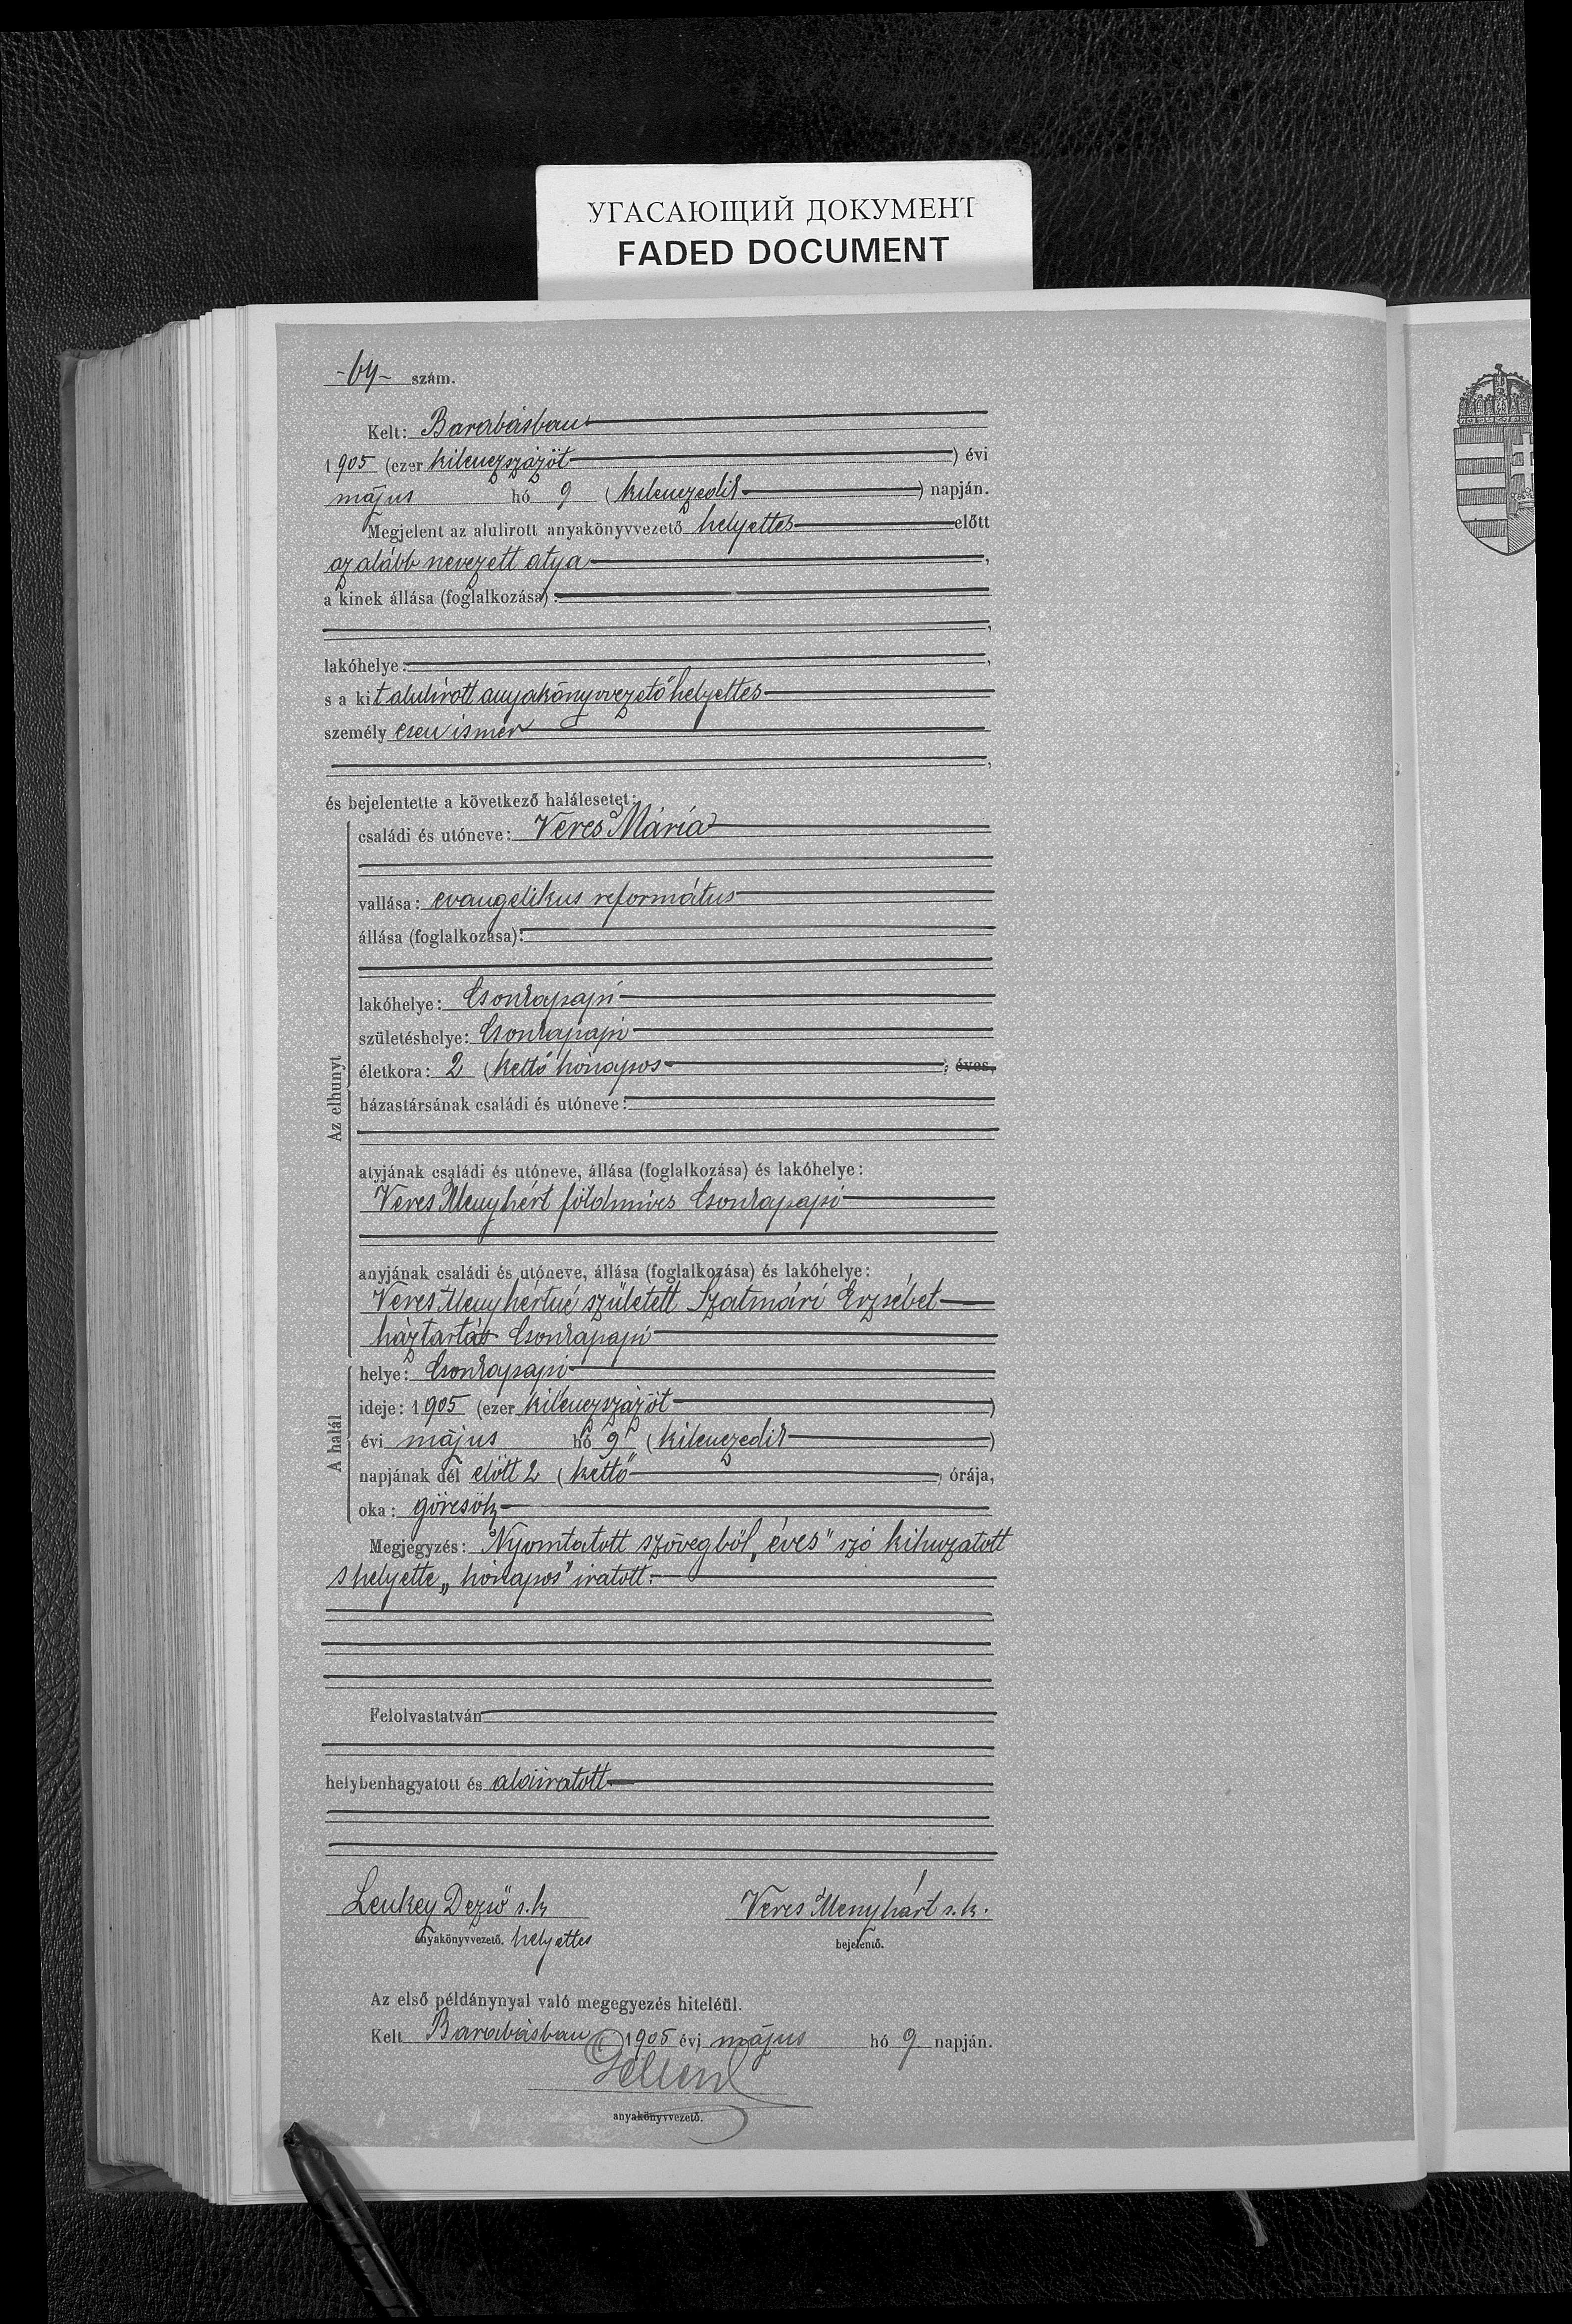 УГАСАЮЩИЙ ДОКУМЕНТ
FADED DOCUMENT
-64- szám.
Kelt: Barabásban
1905 (ezer kilenczszázöt) évi
május hó 9 (kilenczedik) napján.
Megjelent az alulirott anyakönyvvezető helyettes előtt
az alább nevezett atya,
a kinek állása (foglalkozása):
lakóhelye:
s a kit alulirott anyakönyvvezető helyettes
személyesen ismer
és bejelentette a következő halálesetet:
Az elhunyt
családi és utóneve: Veres Mária
vallása: evangelikus református
állása (foglalkozása):
lakóhelye: Csonkapapi
születéshelye: Csonkapapi
életkora: 2 (kettő hónapos) éves,
házastársának családi és utóneve:
atyjának családi és utóneve, állása (foglalkozása) és lakóhelye:
Veres Menyhért földmives Csonkapapi
anyjának családi és utóneve, állása (foglalkozása) és lakóhelye:
Veres Menyhértné született Szatmári Erzsébet
háztartás Csonkapapi
A halál
helye: Csonkapapi
ideje: 1905 (ezer kilenczszázöt)
évi május hó 9 (kilenczedik)
napjának dél előtt 2 (kettő) órája,
oka: görcsök
Megjegyzés: Nyomtatott szövegből „éves" szó kihuzatott
s helyette „hónapos" iratott.
Felolvastatván
helybenhagyatott és aláiratott
Lenkey Dezső s.k. Veres Menyhárt s.k.
anyakönyvvezető. helyettes bejelentő.
Az első példánynyal való megegyezés hiteléül.
Kelt Barabásban 1905 évi május hó 9 napján.
anyakönyvvezető.